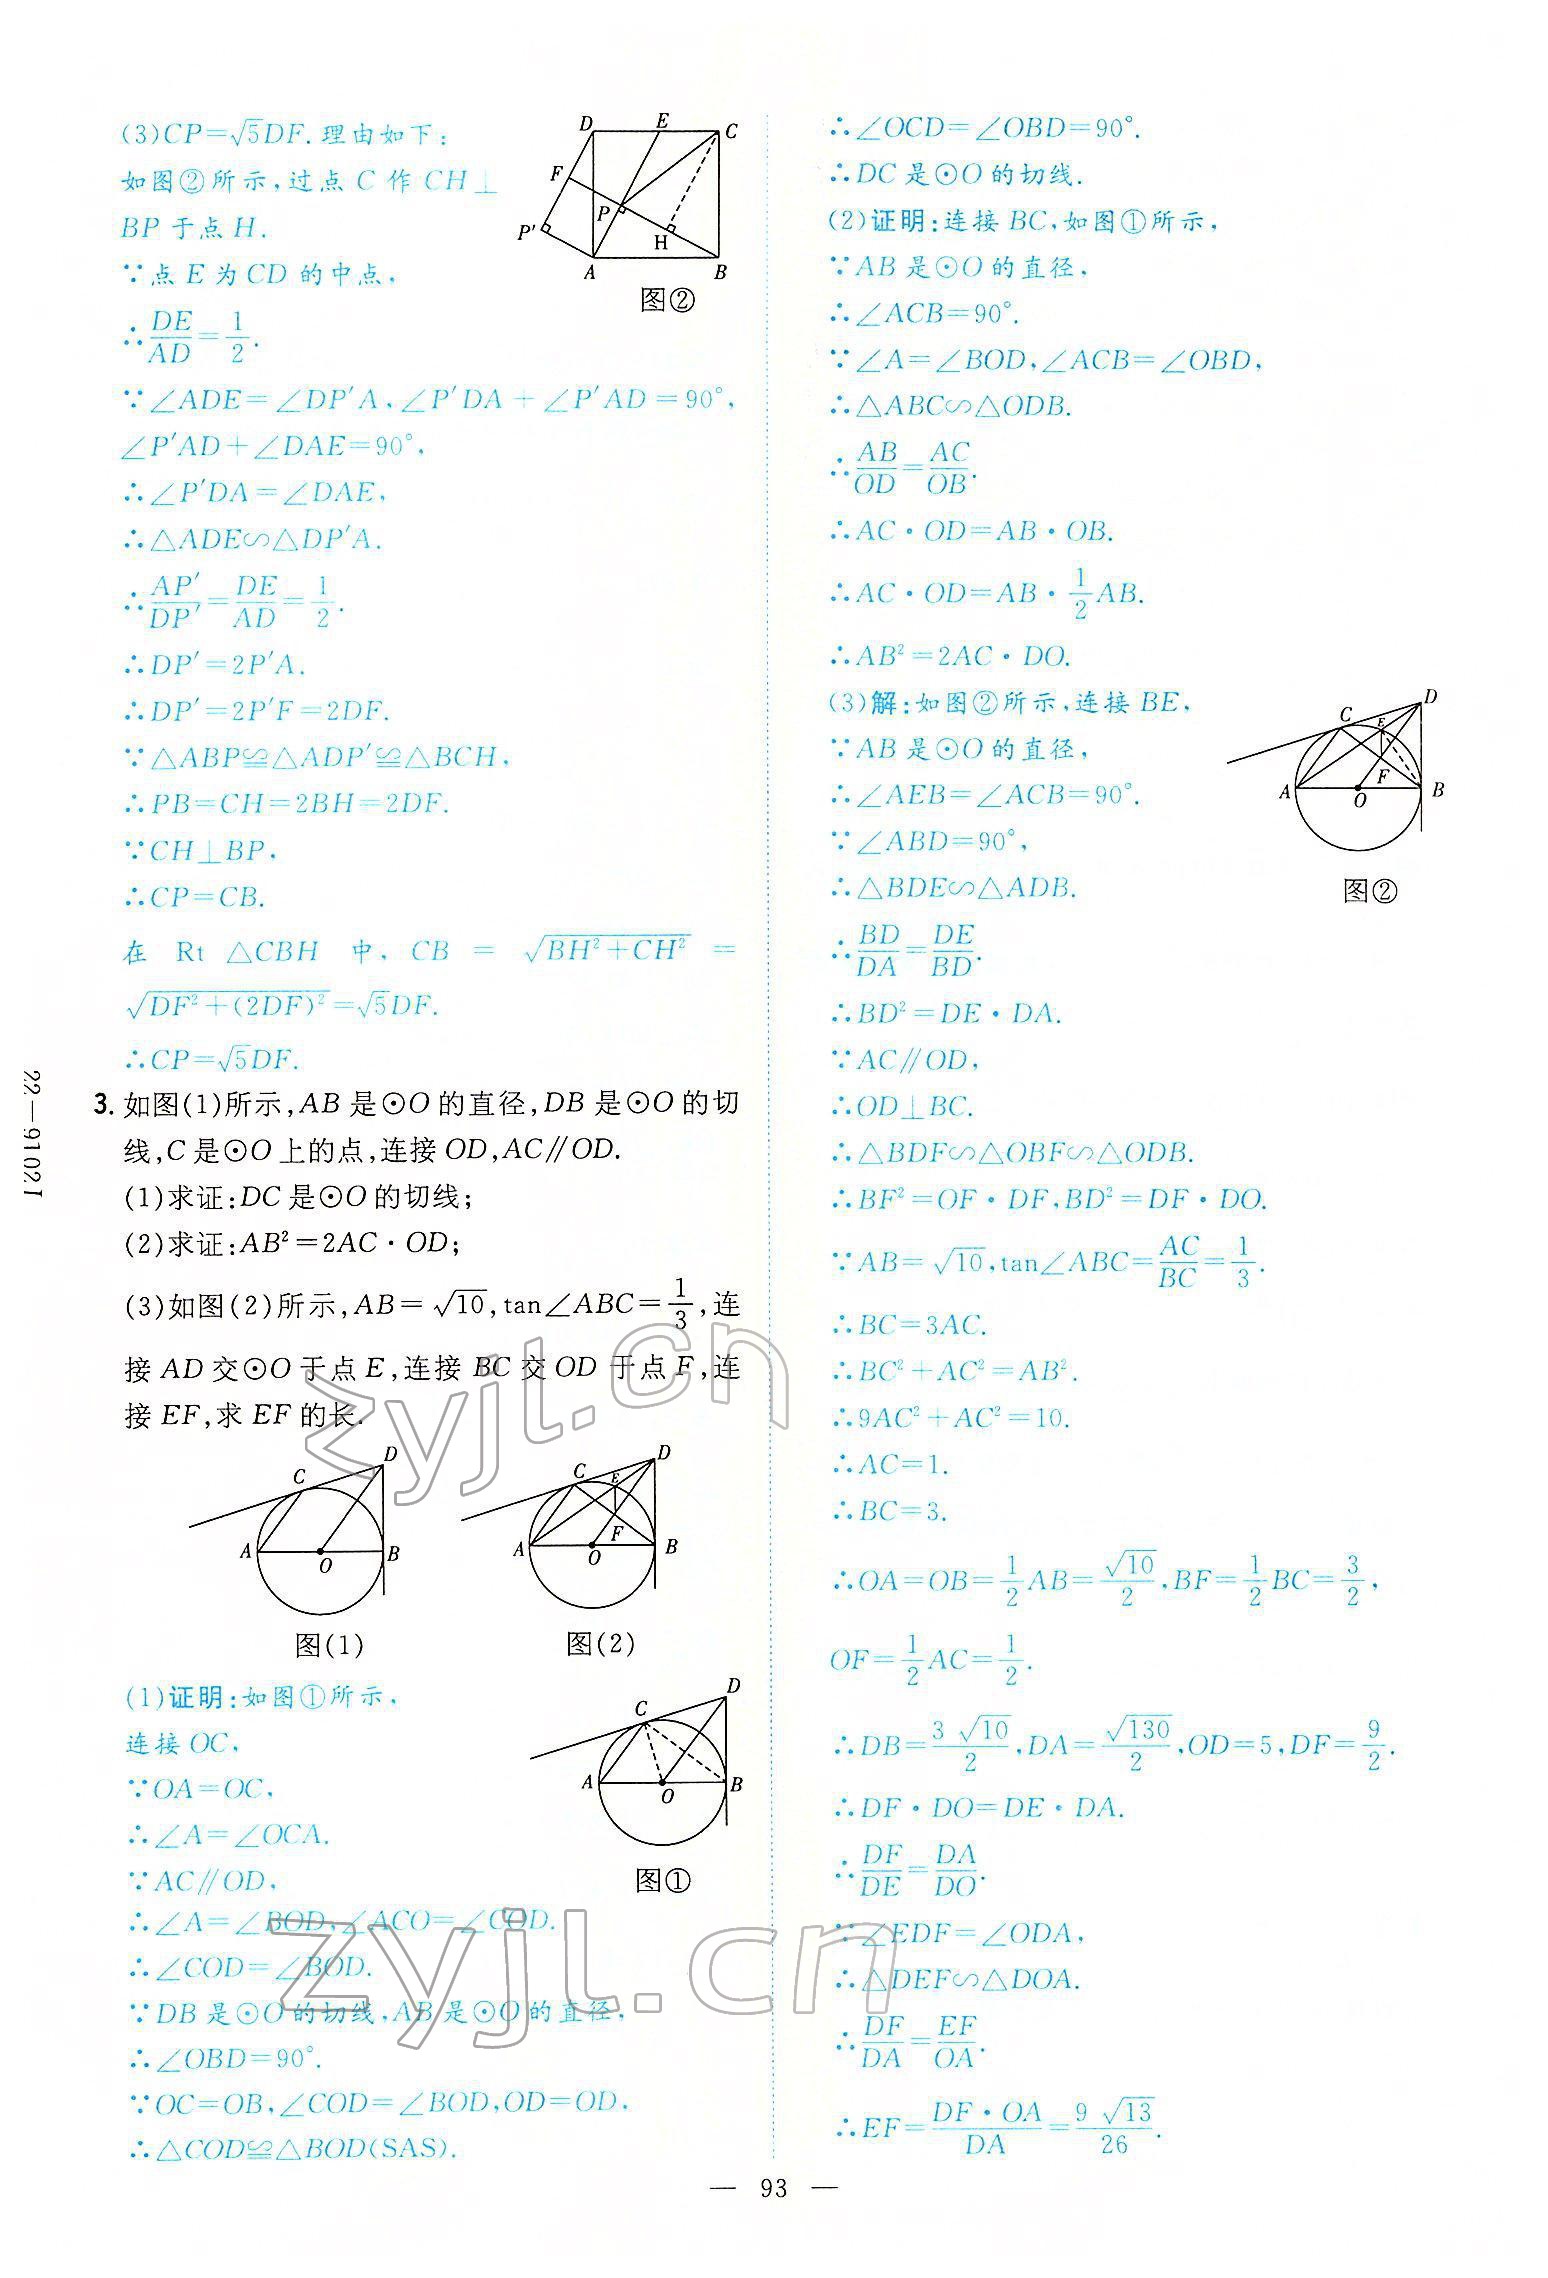 (3)CP=√5DF.理由如下:
如图②所示,过点 C 作 CH⊥
BP于点 H.
∵点 E 为 CD 的中点,
∴DE/AD=1/2.
D E C F P P′ H A B
图②
∵∠ADE=∠DP′A,∠P′DA+∠P′AD=90°,
∠P′AD+∠DAE=90°,
∴∠P′DA=∠DAE,
∴△ADE∽△DP′A.
∴AP′/DP′=DE/AD=1/2.
∴DP′=2P′A.
∴DP′=2P′F=2DF.
∵△ABP≌△ADP′≌△BCH,
∴PB=CH=2BH=2DF.
∵CH⊥BP,
∴CP=CB.
在 Rt △CBH 中, CB = √(BH²+CH²) =
√(DF²+(2DF)²)=√5DF.
∴CP=√5DF.
3. 如图(1)所示,AB 是⊙O 的直径,DB 是⊙O 的切
线,C 是⊙O 上的点,连接 OD,AC∥OD.
(1)求证:DC 是⊙O 的切线;
(2)求证:AB²=2AC·OD;
(3)如图(2)所示,AB=√10,tan∠ABC=1/3,连
接 AD 交⊙O 于点 E,连接 BC 交 OD 于点 F,连
接 EF,求 EF 的长.
D C A O B
图(1)
D C E F A O B
图(2)
(1)证明:如图①所示,
连接 OC,
∵OA=OC,
∴∠A=∠OCA.
∵AC∥OD,
D C A O B
图①
∴∠A=∠BOD,∠ACO=∠COD.
∴∠COD=∠BOD.
∵DB 是⊙O 的切线,AB 是⊙O 的直径,
∴∠OBD=90°.
∵OC=OB,∠COD=∠BOD,OD=OD,
∴△COD≌△BOD(SAS).
∴∠OCD=∠OBD=90°.
∴DC 是⊙O 的切线.
(2)证明:连接 BC,如图①所示,
∵AB 是⊙O 的直径,
∴∠ACB=90°.
∵∠A=∠BOD,∠ACB=∠OBD,
∴△ABC∽△ODB.
∴AB/OD=AC/OB.
∴AC·OD=AB·OB.
∴AC·OD=AB·1/2AB.
∴AB²=2AC·DO.
(3)解:如图②所示,连接 BE,
∵AB 是⊙O 的直径,
∴∠AEB=∠ACB=90°.
∵∠ABD=90°,
∴△BDE∽△ADB.
D C E F A O B
图②
∴BD/DA=DE/BD.
∴BD²=DE·DA.
∵AC∥OD,
∴OD⊥BC.
∴△BDF∽△OBF∽△ODB.
∴BF²=OF·DF,BD²=DF·DO.
∵AB=√10,tan∠ABC=AC/BC=1/3.
∴BC=3AC.
∴BC²+AC²=AB².
∴9AC²+AC²=10.
∴AC=1.
∴BC=3.
∴OA=OB=1/2AB=√10/2,BF=1/2BC=3/2,
OF=1/2AC=1/2.
∴DB=3√10/2,DA=√130/2,OD=5,DF=9/2.
∴DF·DO=DE·DA.
∴DF/DE=DA/DO.
∵∠EDF=∠ODA,
∴△DEF∽△DOA.
∴DF/DA=EF/OA.
∴EF=DF·OA/DA=9√13/26.
— 93 —
22—9102J
zyjl.cn
zyjl.cn